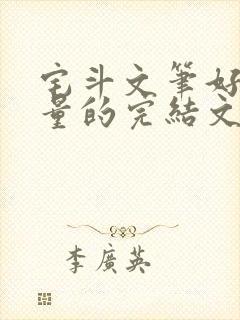 宅斗文筆好
量的完結文
李廣英